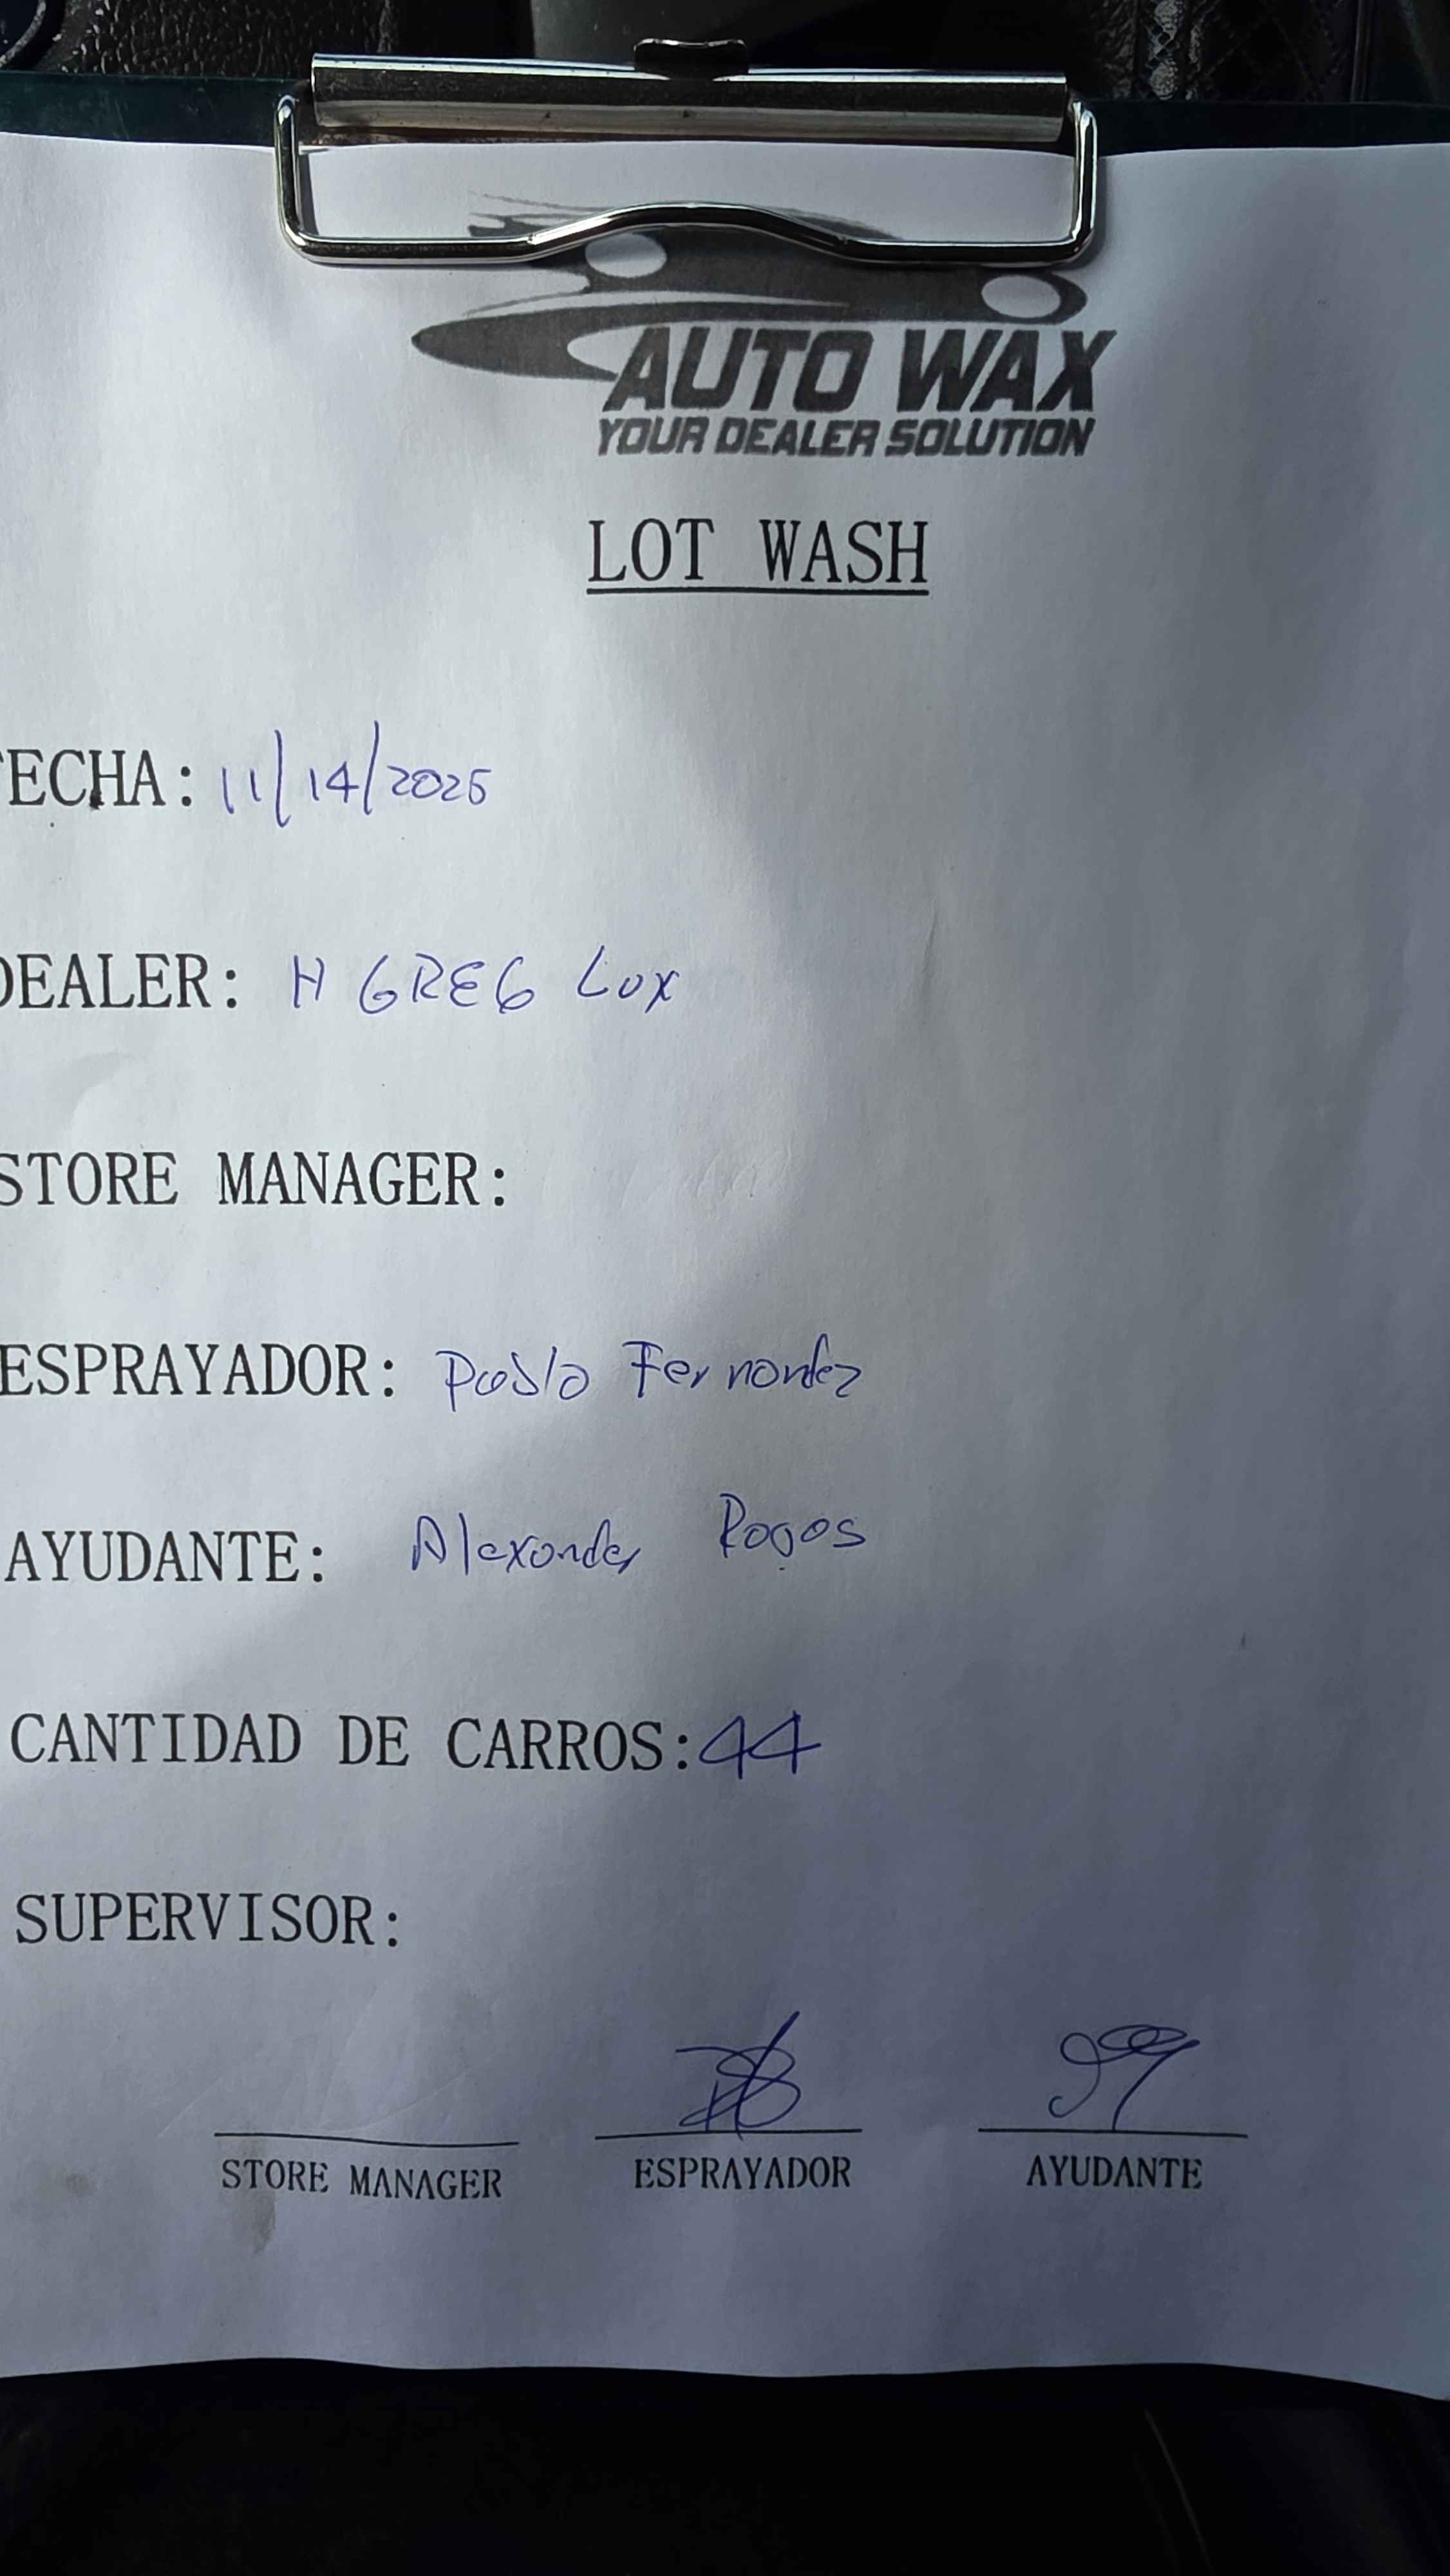 AUTO WAX
YOUR DEALER SOLUTION
LOT WASH
FECHA: 11/14/2025
DEALER: H GREG Lux
STORE MANAGER:
ESPRAYADOR: Pablo Fernandez
AYUDANTE: Alexander
CANTIDAD DE CARROS: 44
SUPERVISOR:
STORE MANAGER ESPRAYADOR AYUDANTE